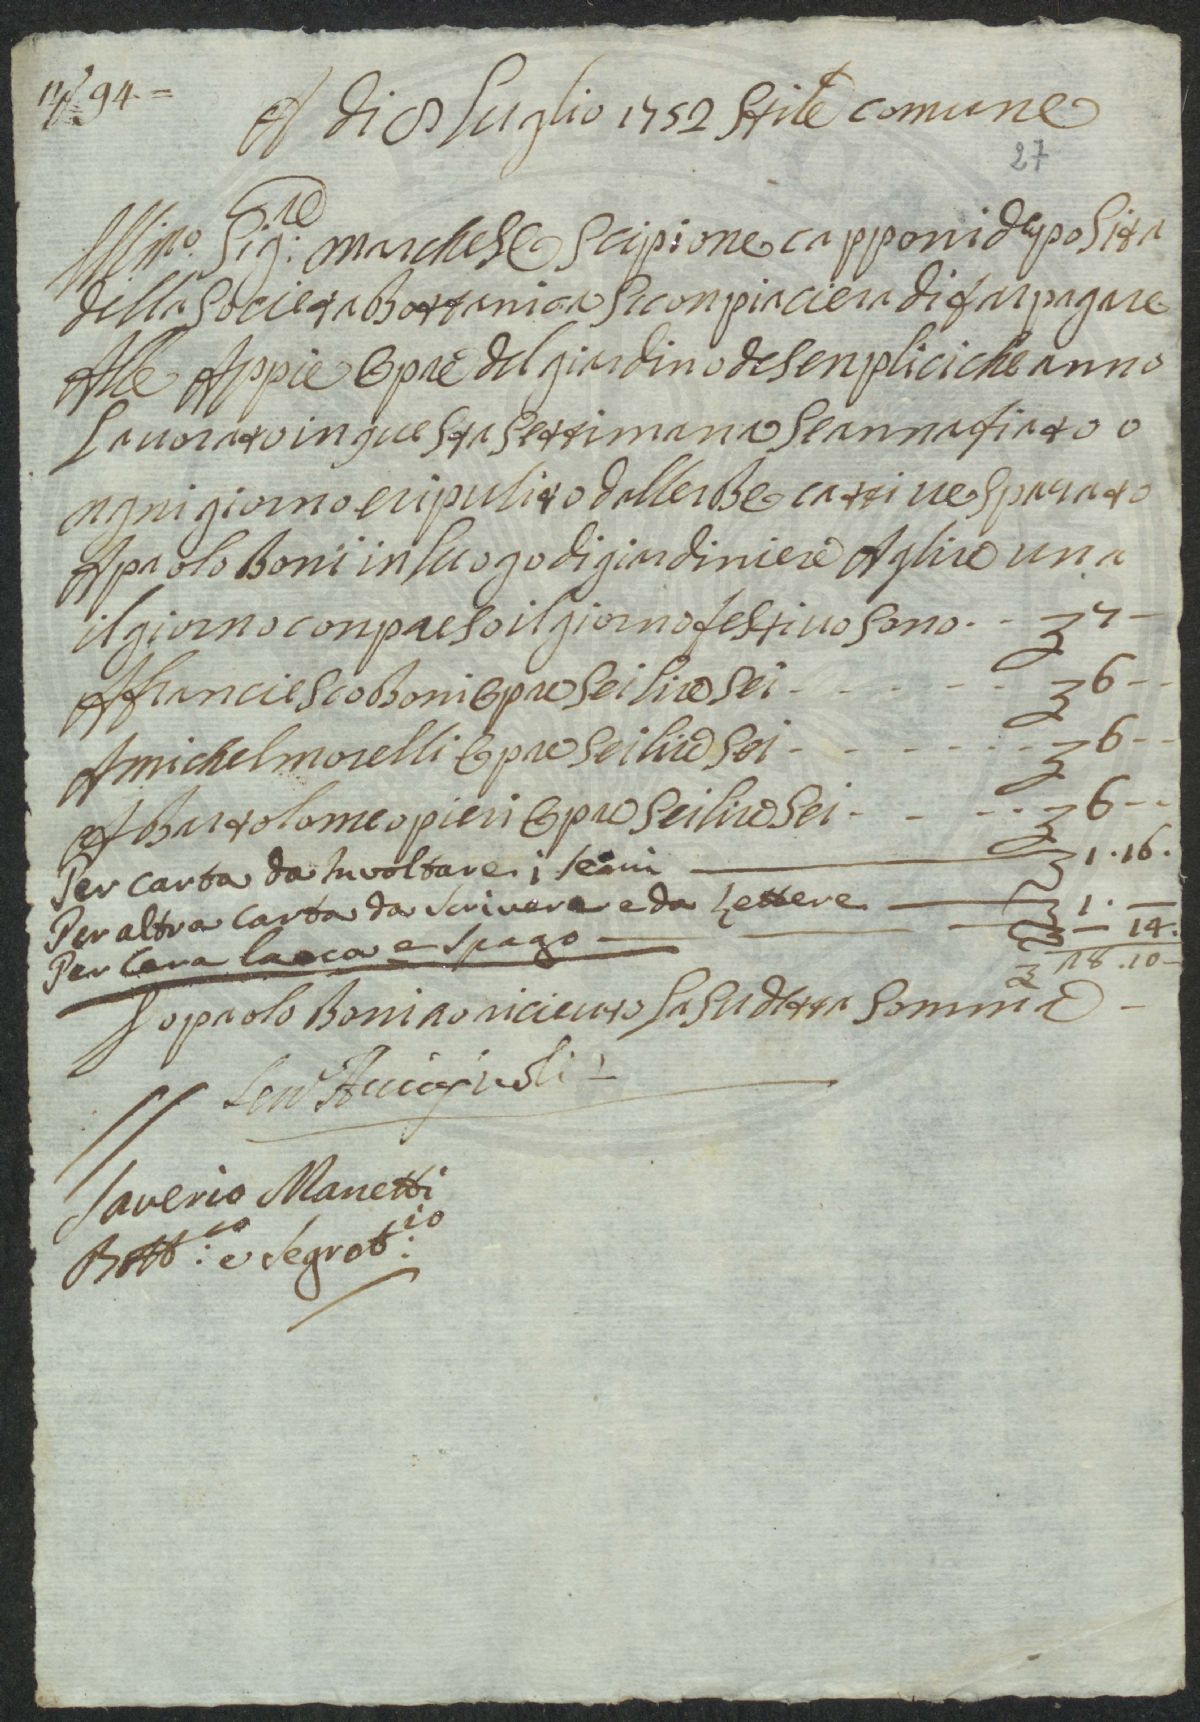 N° 94 =
A di 8 Luglio 1752 Stile comune
27
Ill.mo Sig:re marchese Scipione capponi depositа
della Societa Bottanica Si conpiaciera di far pagare
Alle Appie Opre del giardino de Senplici che anno
Lauorato in questa Settimana Se annafiato o
ogni giorno e ripulito dallerBe cattiue e sparato
A paolo Boni in luogo di giardiniere A lire una
il giorno conpreso il giorno festiuo Sono - - 7 -
A franciesco Boni Opre Sei lire Sei - - - - - 6 - -
A michel morelli Opre Sei lire Sei - - - - - 6 - -
A Bartolomeo pieri Opre Sei lire Sei - - - - 6 - -
Per carta da Involtare i semi 1 . 16 .
Per altra carta da scrivere e da Lettere 1 . —
Per Cera lacca e Spago — 14 .
18 . 10 -
Io paolo Boni o riceuto La Sudetta Somma -
Sen.r Acciajuoli
Saverio Manetti
Bott:co e Segret:io